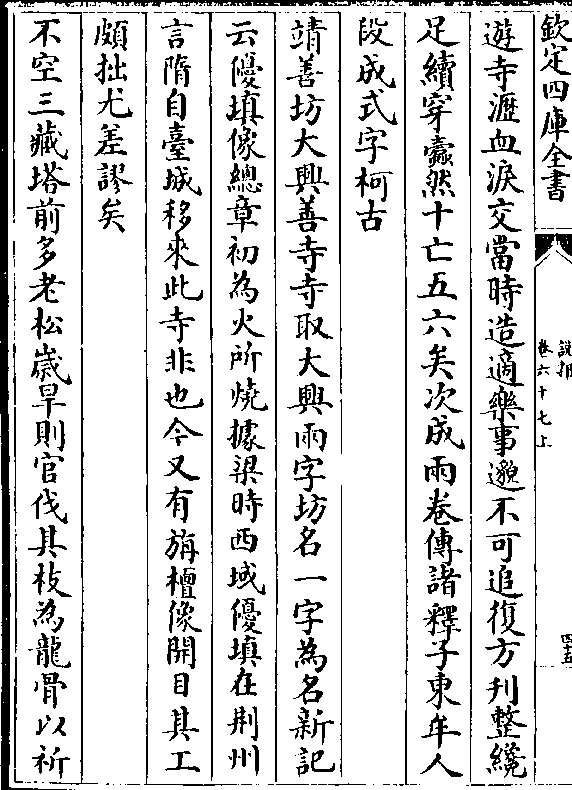 欽定四庫全書
說郛
卷六十七上
四十五
遊寺瀝血淚交當時造適樂事邈不可追復方刋整纔
足續穿蠹然十亡五六矣次成兩卷傳諸釋子東牟人
段成式字柯古
靖善坊大興善寺寺取大興兩字坊名一字為名新記
云優填像總章初為火所燒據梁時西域優填在荆州
言隋自臺城移來此寺非也今又有旃檀像開目其工
頗拙尤差謬矣
不空三藏塔前多老松嵗旱則官伐其枝為龍骨以祈